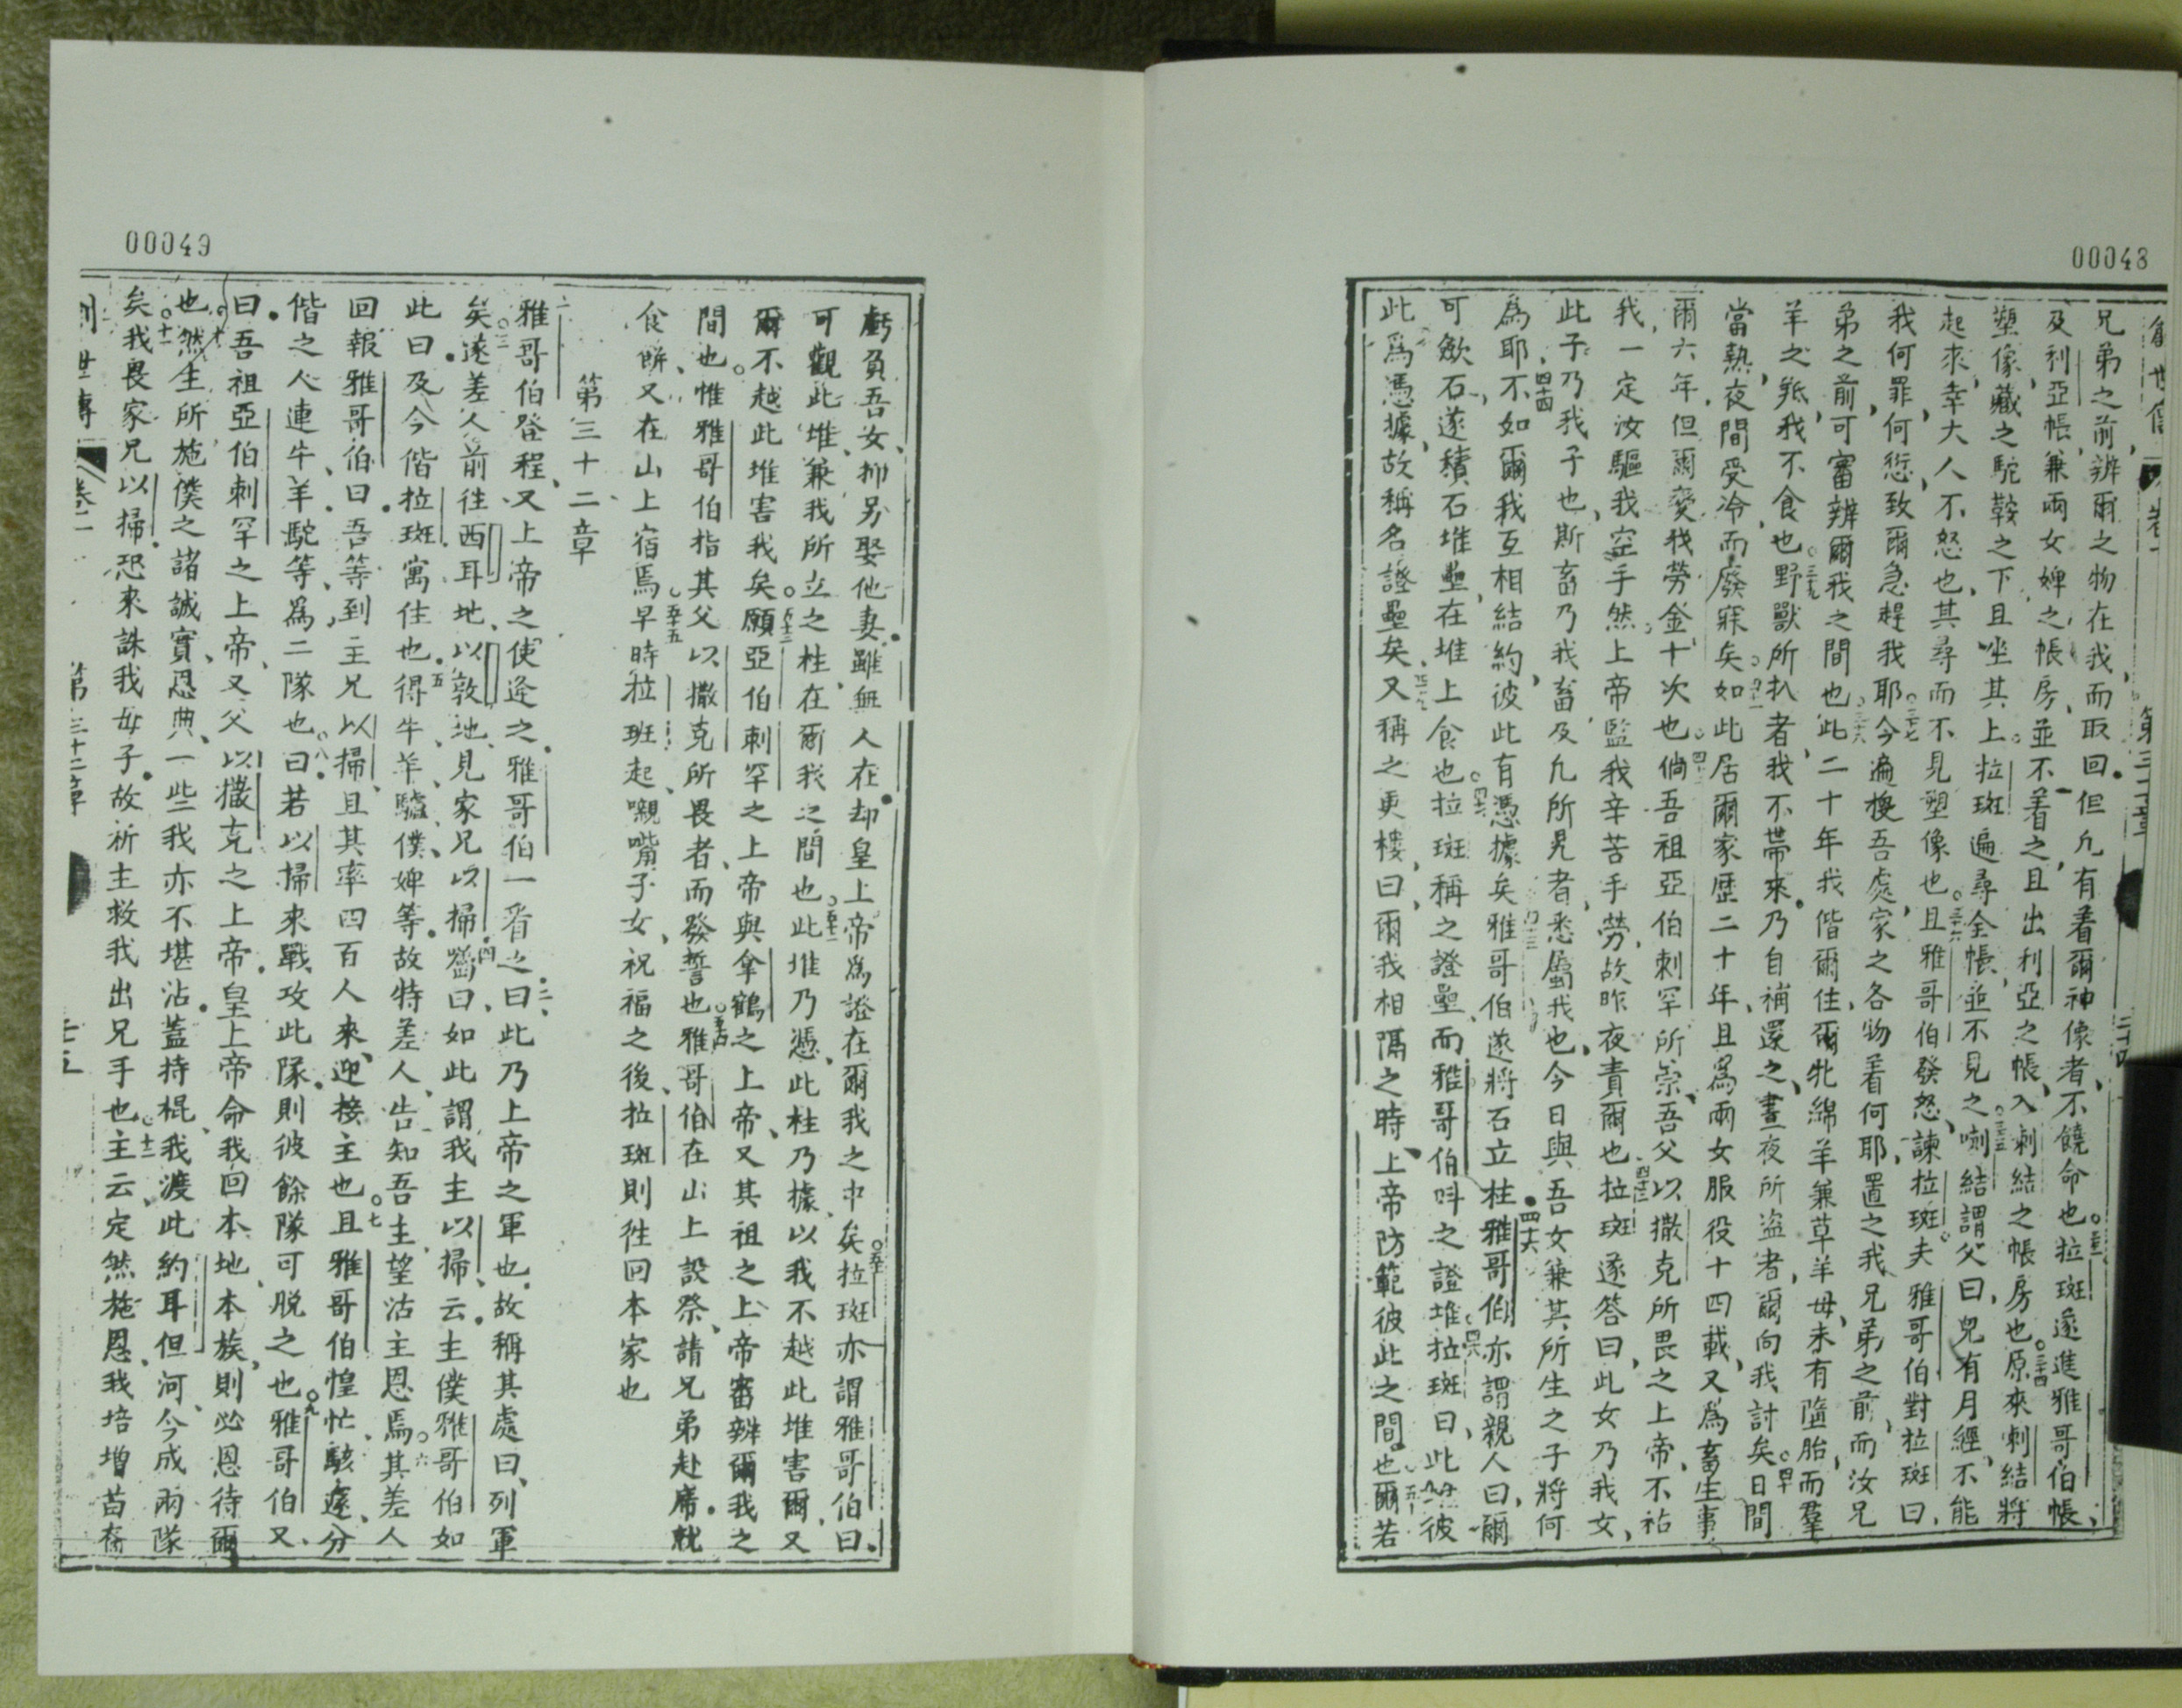 00048
兄弟之前辨爾之物在我而取回但凡有看爾神像者不饒命也拉班遂進雅哥伯帳
及利亞帳兼兩女婢之帳房並不着之且出利亞之帳入剌結之帳房也原來剌結將
塑像藏之駝鞍之下且坐其上拉班遍尋全帳並不見之剌結謂父曰兒有月經不能
起來幸大人不怒也其尋而不見塑像也且雅哥伯發怒諫拉班夫雅哥伯對拉班曰
我何罪何愆致爾急趕我耶今遍搜吾處家之各物看何耶置之我兄弟之前而汝兄
弟之前可審辨爾我之間也此二十年我偕爾住爾牝綿羊兼草羊母未有墮胎而羣
羊之羝我不食也野獸所扒者我不帶來乃自補還之晝夜所盜者爾向我討矣日間
當熱夜間受冷而廢寐矣如此居爾家歷二十年且爲兩女服役十四載又爲畜生事
爾六年但爾變我勞金十次也倘吾祖亞伯刺罕所崇吾父以撒克所畏之上帝不祐
我一定汝驅我空手然上帝監我辛苦手勞故昨夜責爾也拉班遂答曰此女乃我女
此子乃我子也斯畜乃我畜及凡所見者悉屬我也今日與吾女兼其所生之子將何
爲耶不如爾我互相結約彼此有憑據矣雅哥伯遂將石立柱雅哥伯亦謂親人曰爾
可歛石遂積石堆壘在堆上食也拉班稱之證壘而雅哥伯呌之證堆拉班曰此 彼
此爲憑據故稱名證壘矣又稱之更樓曰爾我相隔之時上帝防範彼此之間也爾若
00049
虧負吾女抑另娶他妻雖無人在却皇上帝爲證在爾我之中矣拉班亦謂雅哥伯曰
可觀此堆兼我所立之柱在爾我之間也此堆乃憑此柱乃據以我不越此堆害爾又
爾不越此堆害我矣願亞伯刺罕之上帝與拿鶴之上帝又其祖之上帝審辨爾我之
間也惟雅哥伯指其父以撒克所畏者而發誓也雅哥伯在山上設祭請兄弟赴席就
食餅又在山上宿焉早時拉班起嚫嘴子女祝福之後拉班則徃回本家也
第三十二章
雅哥伯啓程又上帝之使逄之雅哥伯一看之曰此乃上帝之軍也故稱其處曰列軍
矣遂差人前往西耳地以敦地見家兄以掃囑曰如此謂我主以掃云主僕雅哥伯如
此曰及今偕拉班寓住也得牛羊驢僕婢等故特差人告知吾主望沾主恩焉其差人
回報雅哥伯曰吾等到主兄以掃且其率四百人來迎接主也且雅哥伯惶忙駭遂分
偕之人連牛羊駝等爲二隊也曰若以掃來戰攻此隊則彼餘隊可脱之也雅哥伯又
曰吾祖亞伯刺罕之上帝又父以撒克之上帝皇上帝命我回本地本族則必恩待爾
也然主所施僕之諸誠實恩典一些我亦不堪沾蓋持棍我渡此約耳但河今成兩隊
矣我畏家兄以掃恐來誅我母子故祈主救我出兄手也主云定然施恩我培增苗裔
創世傳 卷一 第三十二章